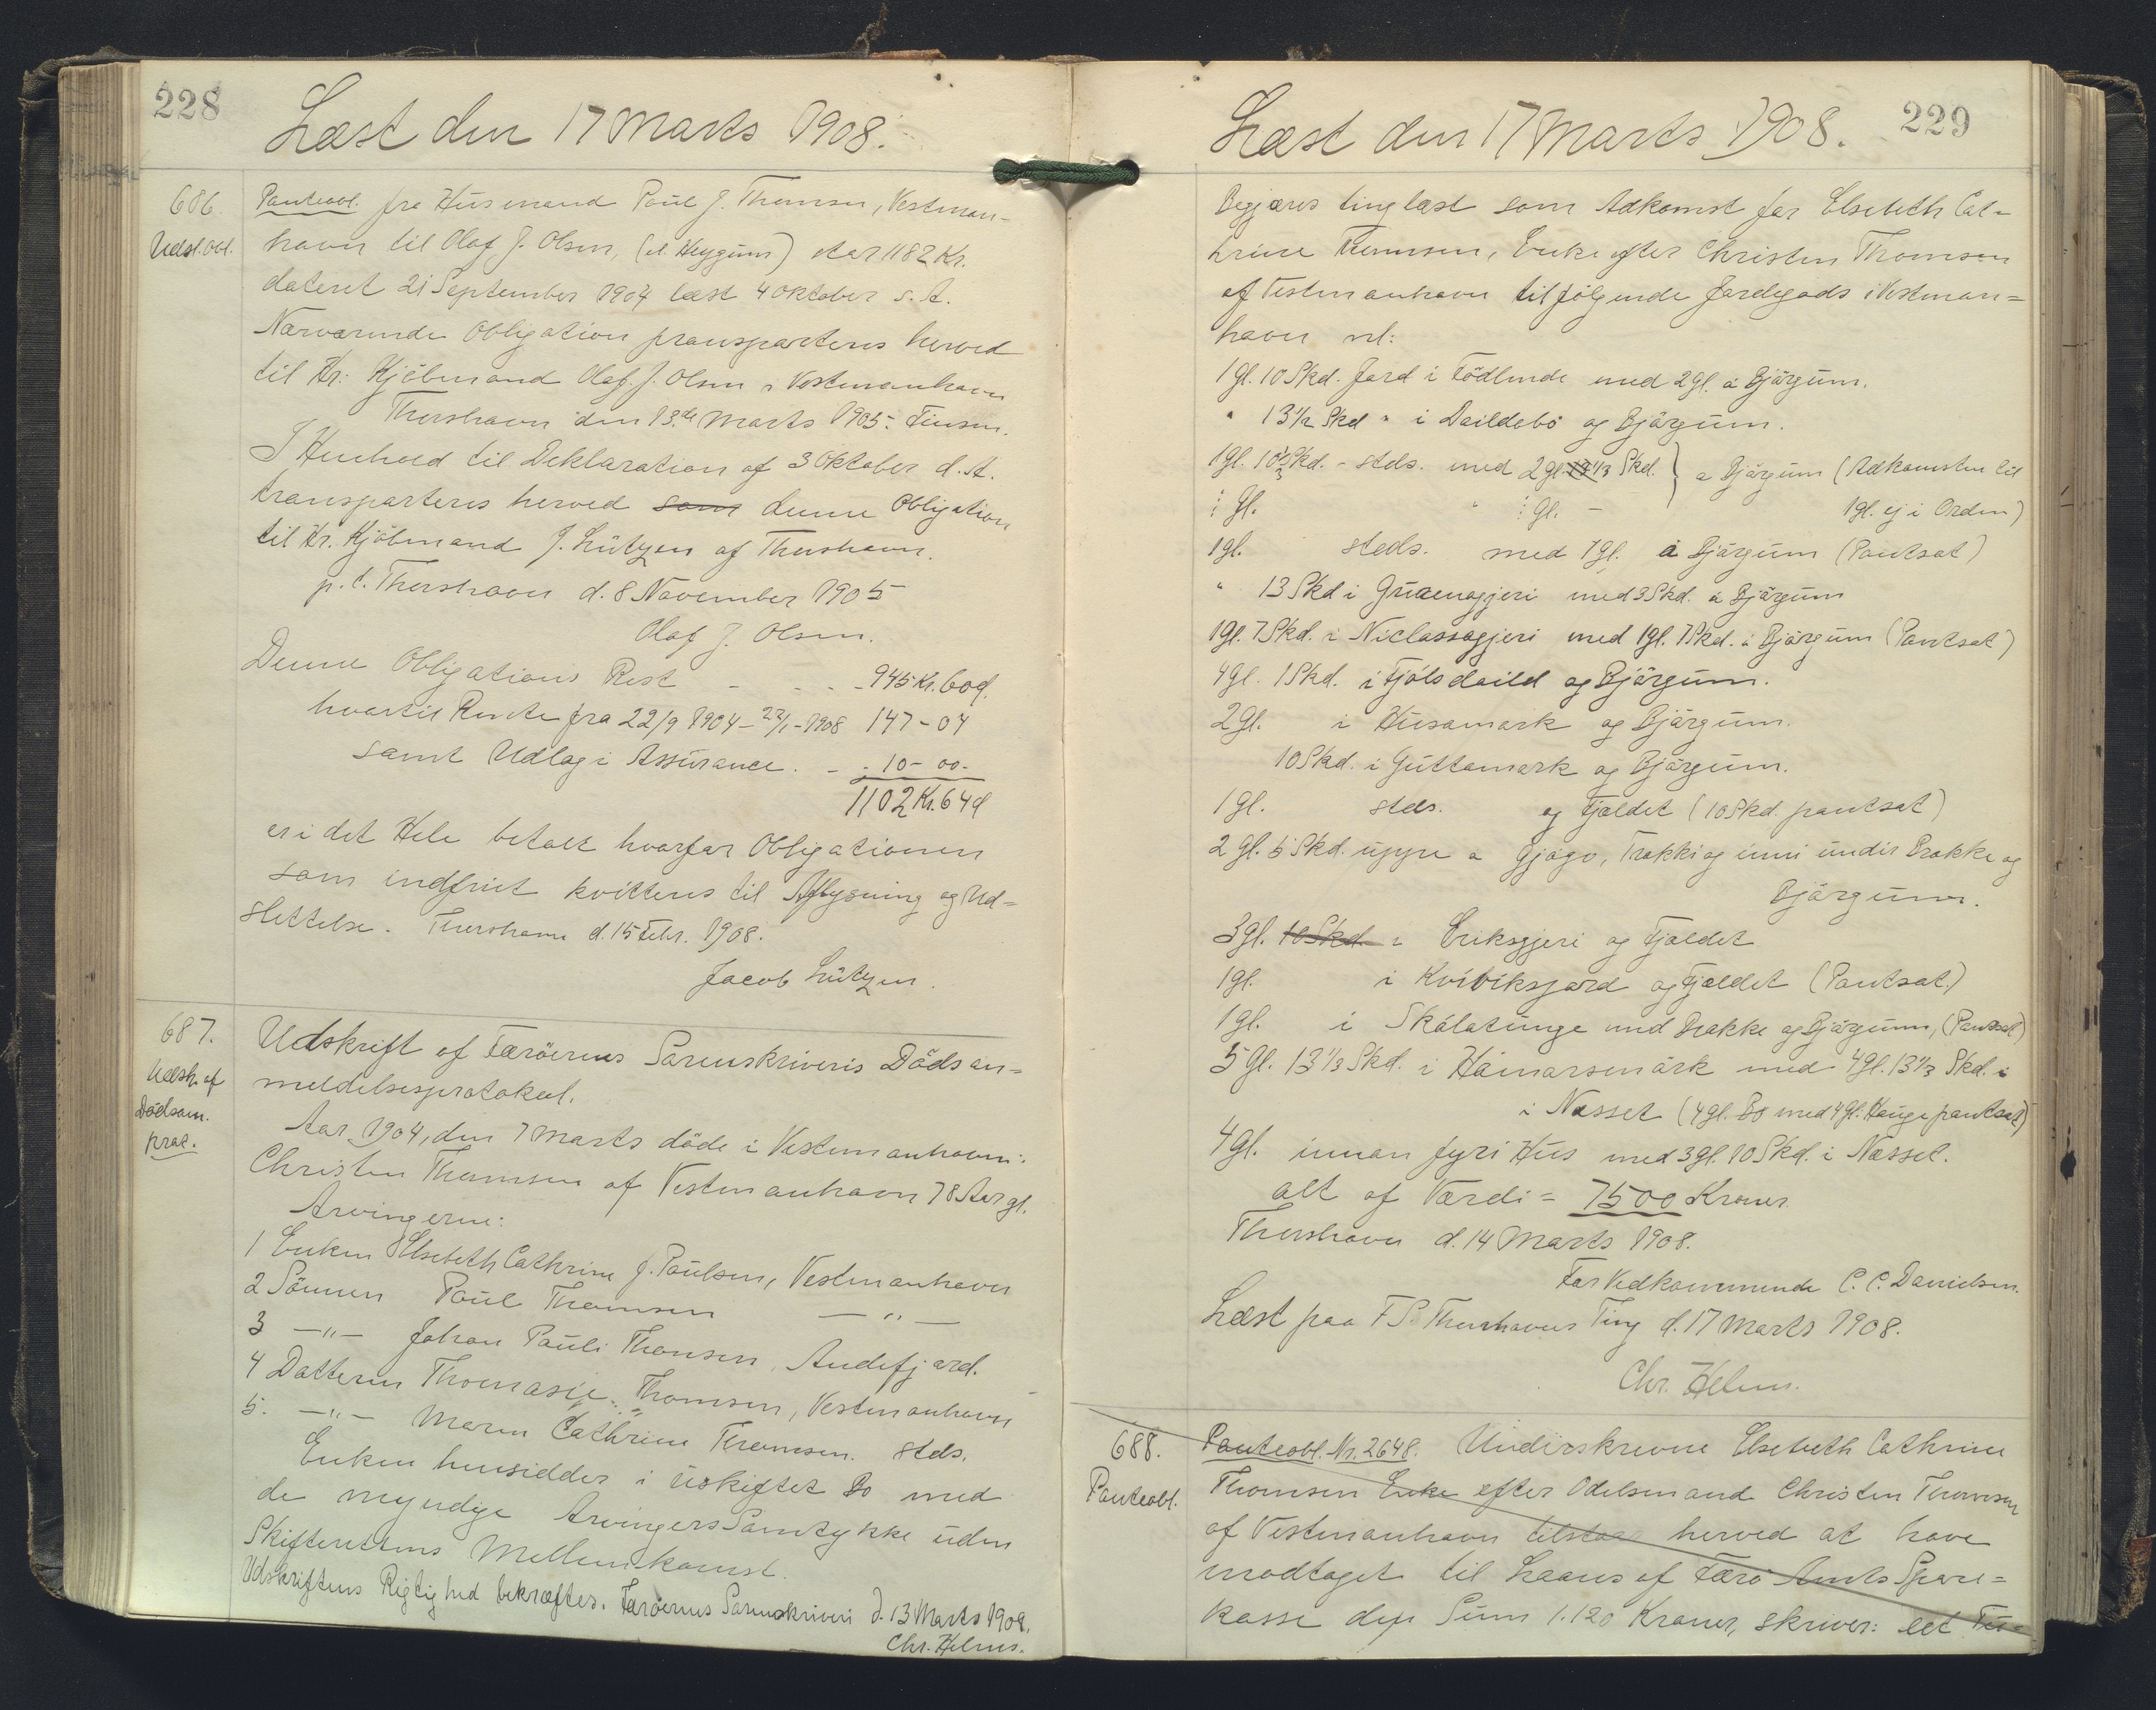 228
Læst den 17 Marts 1908.
686.
Udsl. Obl.
Panteobl. fra Husmand Poul J. Thomsen, Vestman-
havn til Olaf J. Olsen, (á Heygum) stor 1182 Kr.
dateret 21 September 1904 læst 4 Oktober s. A.
Nærværende Obligation transporteres herved
til Hr. Kjöbmand Olaf J. Olsen i Vestmanhavn
Thorshavn den 13de Marts 1905. Finsen.
I Henhold til Deklaration af 3 Oktober d. A.
transporteres herved som denne Obligation
til Hr. Kjöbmand J. Lützen af Thorshavn.
p. t. Thorshavn d. 8 November 1905
Olaf J. Olsen.
Denne Obligations Rest - - - - 945 Kr. 60 d.
hvortil Rente fra 22/9 1904 - 22/1 - 1908 147 - 04
samt Udlæg i Assurance. - - 10 - 00 -
1102 Kr. 64 d
er i det Hele betalt hvorfor Obligationen
som indfriet kvitteres til Aflysning og Ud=
slettelse. Thorshavn d. 15 Febr. 1908.
Jacob Lützen.
687.
Udsk. af
Dödsanm.
prot.
Udskrift af Færöernes Sorenskriveris Dödsan=
meldelsesprotokol.
Aar 1904, den 7 Marts döde i Vestmanhavn:
Christen Thomsen af Vestmanhavn 78 Aar gl.
Arvingerne:
1 Enken Elsebeth Cathrine f. Poulsen, Vestmanhavn
2 Sönnen Poul Thomsen — " —
3 — " — Johan Pauli Thomsen, Andefjord.
4 Datteren Thomasie Thomsen, Vestmanhavn
5. — " — Maren Cathrine Thomsen. stds.
Enken hensidder i uskiftet Bo med
de myndige Arvingers Samtykke uden
Skifterettens Mellemkomst.
Udskriftens Rigtighed bekræftes. Færöernes Sorenskriveri d. 13 Marts 1908.
Chr. Helms.
229
Læst den 17 Marts 1908.
Begjæres tinglæst som Adkomst for Elsebeth Cat-
hrine Thomsen, Enke efter Christen Thomsen
af Vestmanhavn til fölgende Jordegods i Vestman=
havn nl:
1 gl. 10 Skd. Jord i Födlende med 2 gl. á Bjärgum.
" 13 1/2 Skd " i Daildebö og Bjärgum.
1 gl. 10 2/3 Skd. - stds. med 2 gl. 13 1/3 Skd. } a Bjärgum (Adkomsten til
gl. " gl. - 1 gl. ej i Orden)
1 gl. steds. med 1 gl. á Bjärgum (Pantsat)
" 13 Skd i Gruenagjeri med 3 Skd. á Bjärgum
1 gl. 7 Skd. i Niclassagjeri med 1 gl. 7 Skd. á Bjärgum (Pantsat)
4 gl. 1 Skd. i Fjólsdaild og Bjärgum.
2 gl. i Húsamark og Bjärgum.
10 Skd. i Guttamark og Bjärgum.
1 gl. stds. og Fjældet (10 Skd. pantsat)
2 gl. 5 Skd. uppe a Gjógv, Trakki og inni undir Brakke og
Bjärgum.
3 gl. 10 Skd. i Eriksgjeri og Fjældet
1 gl. i Kvivíksjord og Fjældet (Pantsat.)
1 gl. i Skálatunge med Brakke og Bjärgum, (Pantsat)
5 gl. 13 1/3 Skd. i Hámarsmärk med 4 gl. 13 1/3 Skd. i
i Næsset (4 gl. Bö med 4 gl. Hauge pantsat)
4 gl. innan fyri Hús med 3 gl. 10 Skd. i Næsset.
alt af Værdi = 7500 Kroner.
Thorshavn d. 14 Marts 1908.
For Vedkommende C. C. Danielsen.
Læst paa F. S. Thorshavns Ting d. 17 Marts 1908.
Chr. Helms.
688.
Panteobl.
Panteobl. Nr. 2648. Underskrevne Elsebeth Cathrine
Thomsen Enke efter Odelsmand Christen Thomsen
af Vestmanhavn tilstaa herved at have
modtaget til Laans af Færö Amts Spare=
kasse den Sum 1.120 Kroner, skriver: eet Tu=